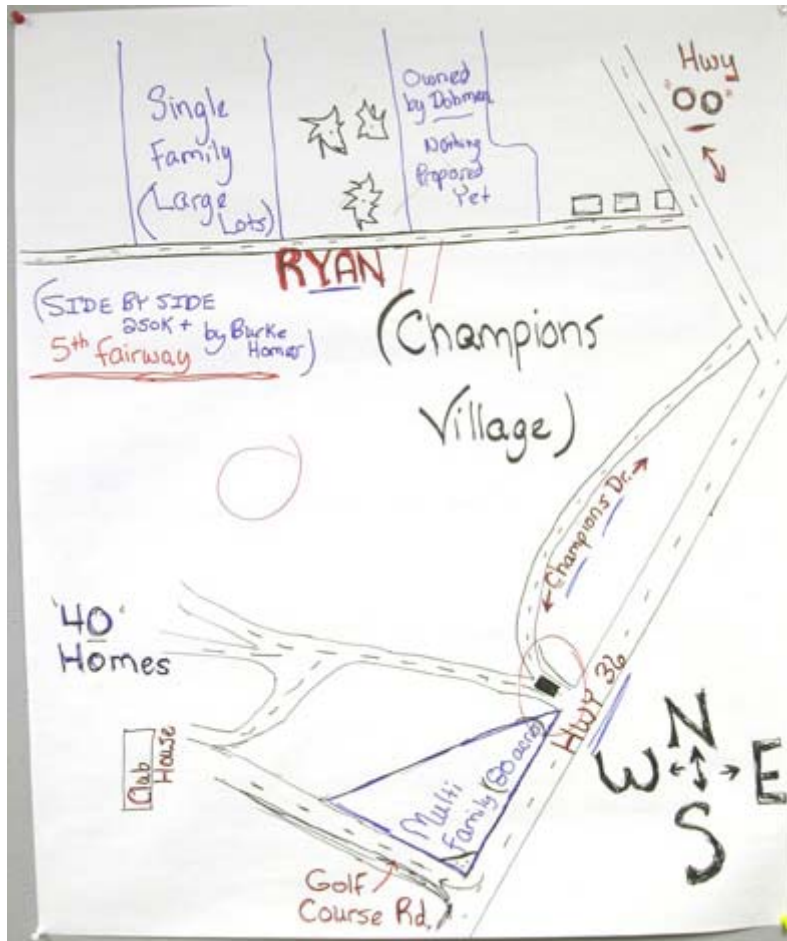 Single
Family
(Large
Lots)
Owned
by Dobmea
Nothing
Proposed
Yet
Hwy
"00"
RYAN
(SIDE BY SIDE
250K+ by Burke
Homes)
5th fairway
(Champions
Village)
Champions Dr.
'40'
Homes
Club
House
Multi
Family (20 acres)
HWY 36
Golf
Course Rd.
N
W E
S